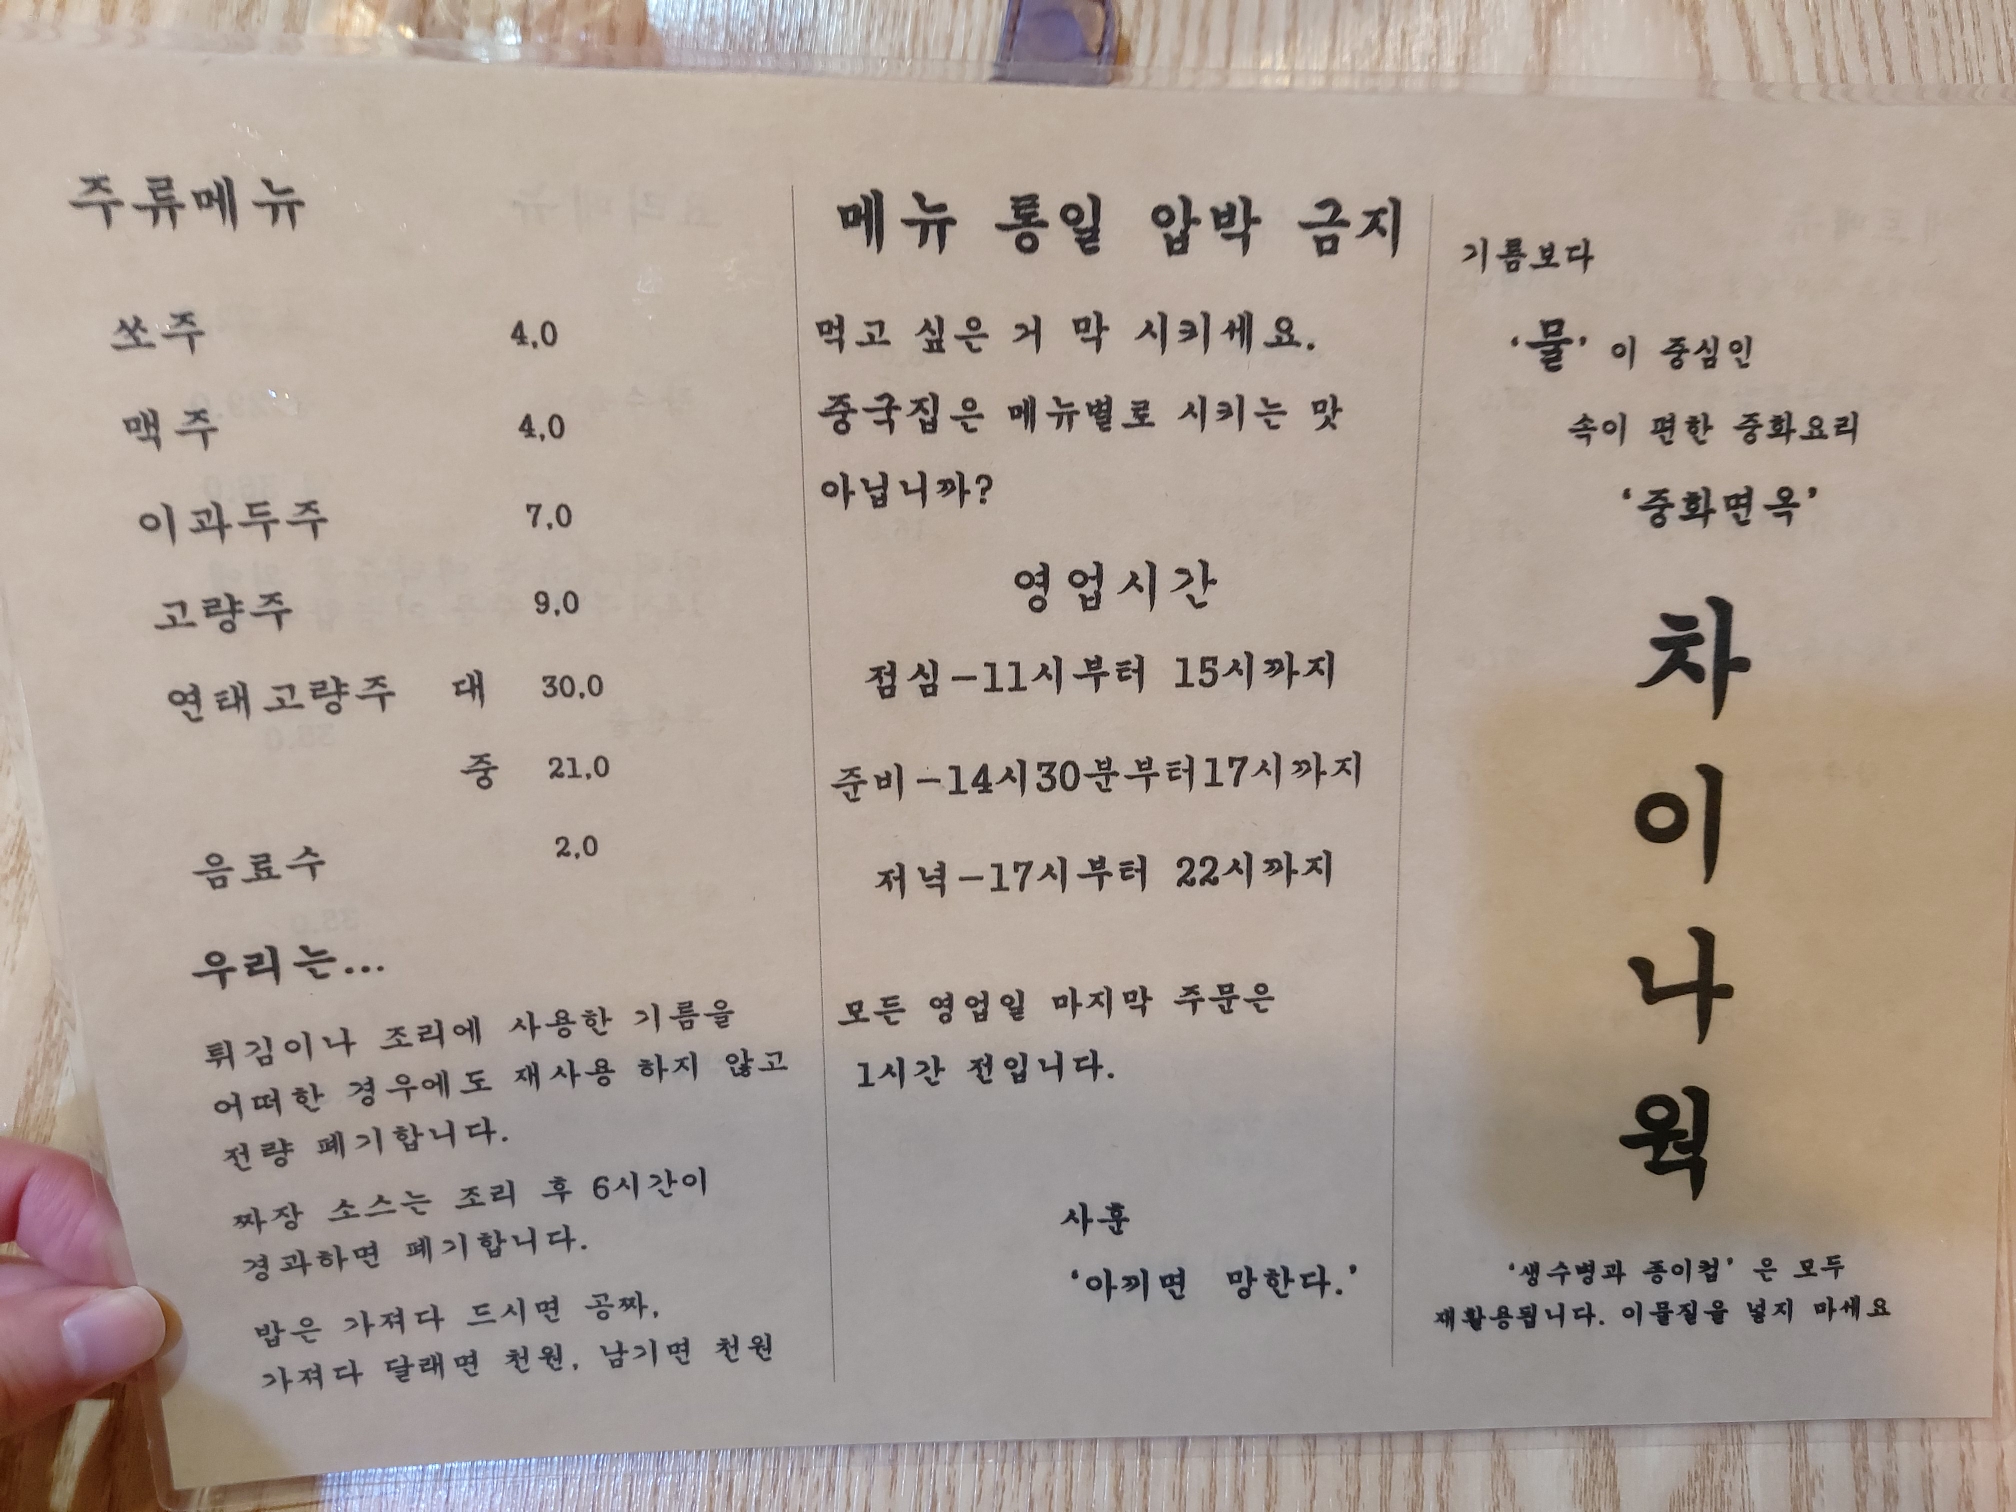 주류메뉴
쏘주 4.0
맥주 4.0
이과두주 7.0
고량주 9.0
연태고량주 대 30.0
중 21.0
음료수 2.0
우리는...
튀김이나 조리에 사용한 기름을
어떠한 경우에도 재사용 하지 않고
전량 폐기합니다.
짜장 소스는 조리 후 6시간이
경과하면 폐기합니다.
밥은 가져다 드시면 공짜,
가져다 달래면 천원, 남기면 천원
메뉴 통일 압박 금지
먹고 싶은 거 막 시키세요.
중국집은 메뉴별로 시키는 맛
아닙니까?
영업시간
점심-11시부터 15시까지
준비-14시30분부터17시까지
저녁-17시부터 22시까지
모든 영업일 마지막 주문은
1시간 전입니다.
사훈
‘아끼면 망한다.’
기름보다
‘물’이 중심인
속이 편한 중화요리
‘중화면옥’
차
이
나
웍
‘생수병과 종이컵’은 모두
재활용됩니다. 이물질을 넣지 마세요